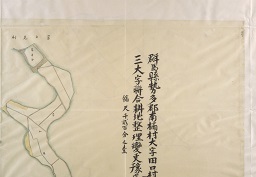 群馬縣勢多郡南橘村大字田口村
三大字聯合耕地整理變更豫
縮尺千貳百分之壹